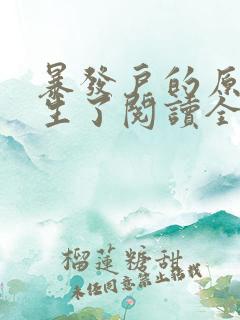 暴發戶的原
生了閱讀全
榴蓮糖甜
未经同意禁止转载